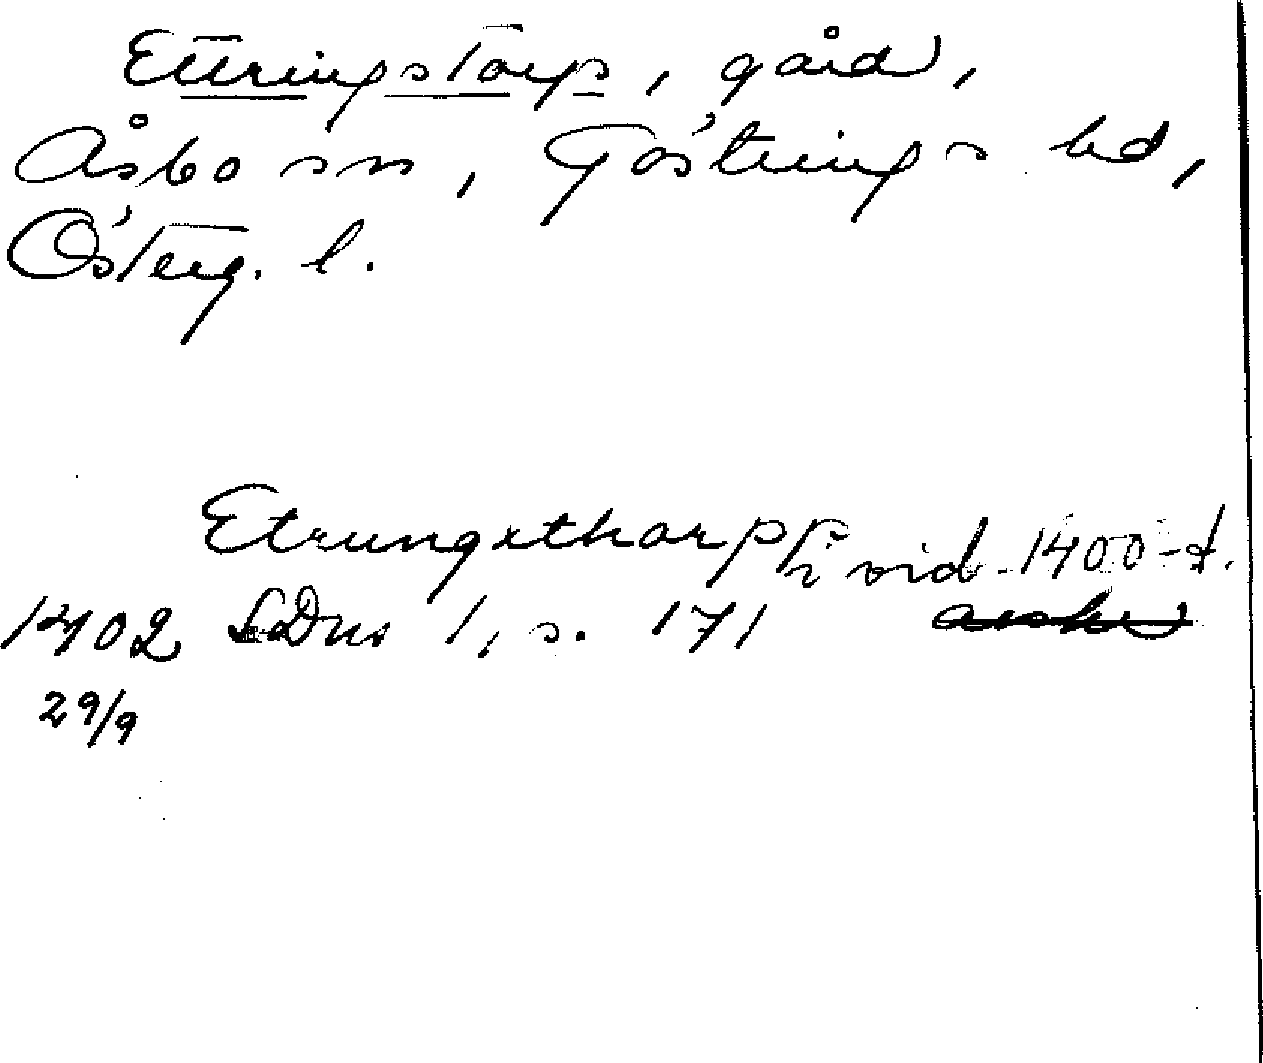 Ettringstorp, gård,
Åsbo sn, Göstrings hd,
Österg. l.
Etrungxthorpp i vid. 1400-t.
1402 SDns 1, s. 171
29/9